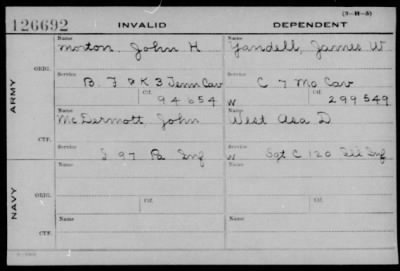 (3-H-5)
126692 INVALID DEPENDENT
Name Name
Morton, John H Yandell, James W
ORIG.
Service Service
B. F & K 3 Tenn Cav C 7 Mo Cav
Ctf. Ctf.
94654 W 299549
ARMY
Name Name
McDermott, John West Asa D
CTF.
Service Service
I 97 Pa Inf W Sgt C 120 Ill Inf
Name Name
ORIG.
Service Service
Ctf. Ctf.
NAVY
Name Name
CTF.